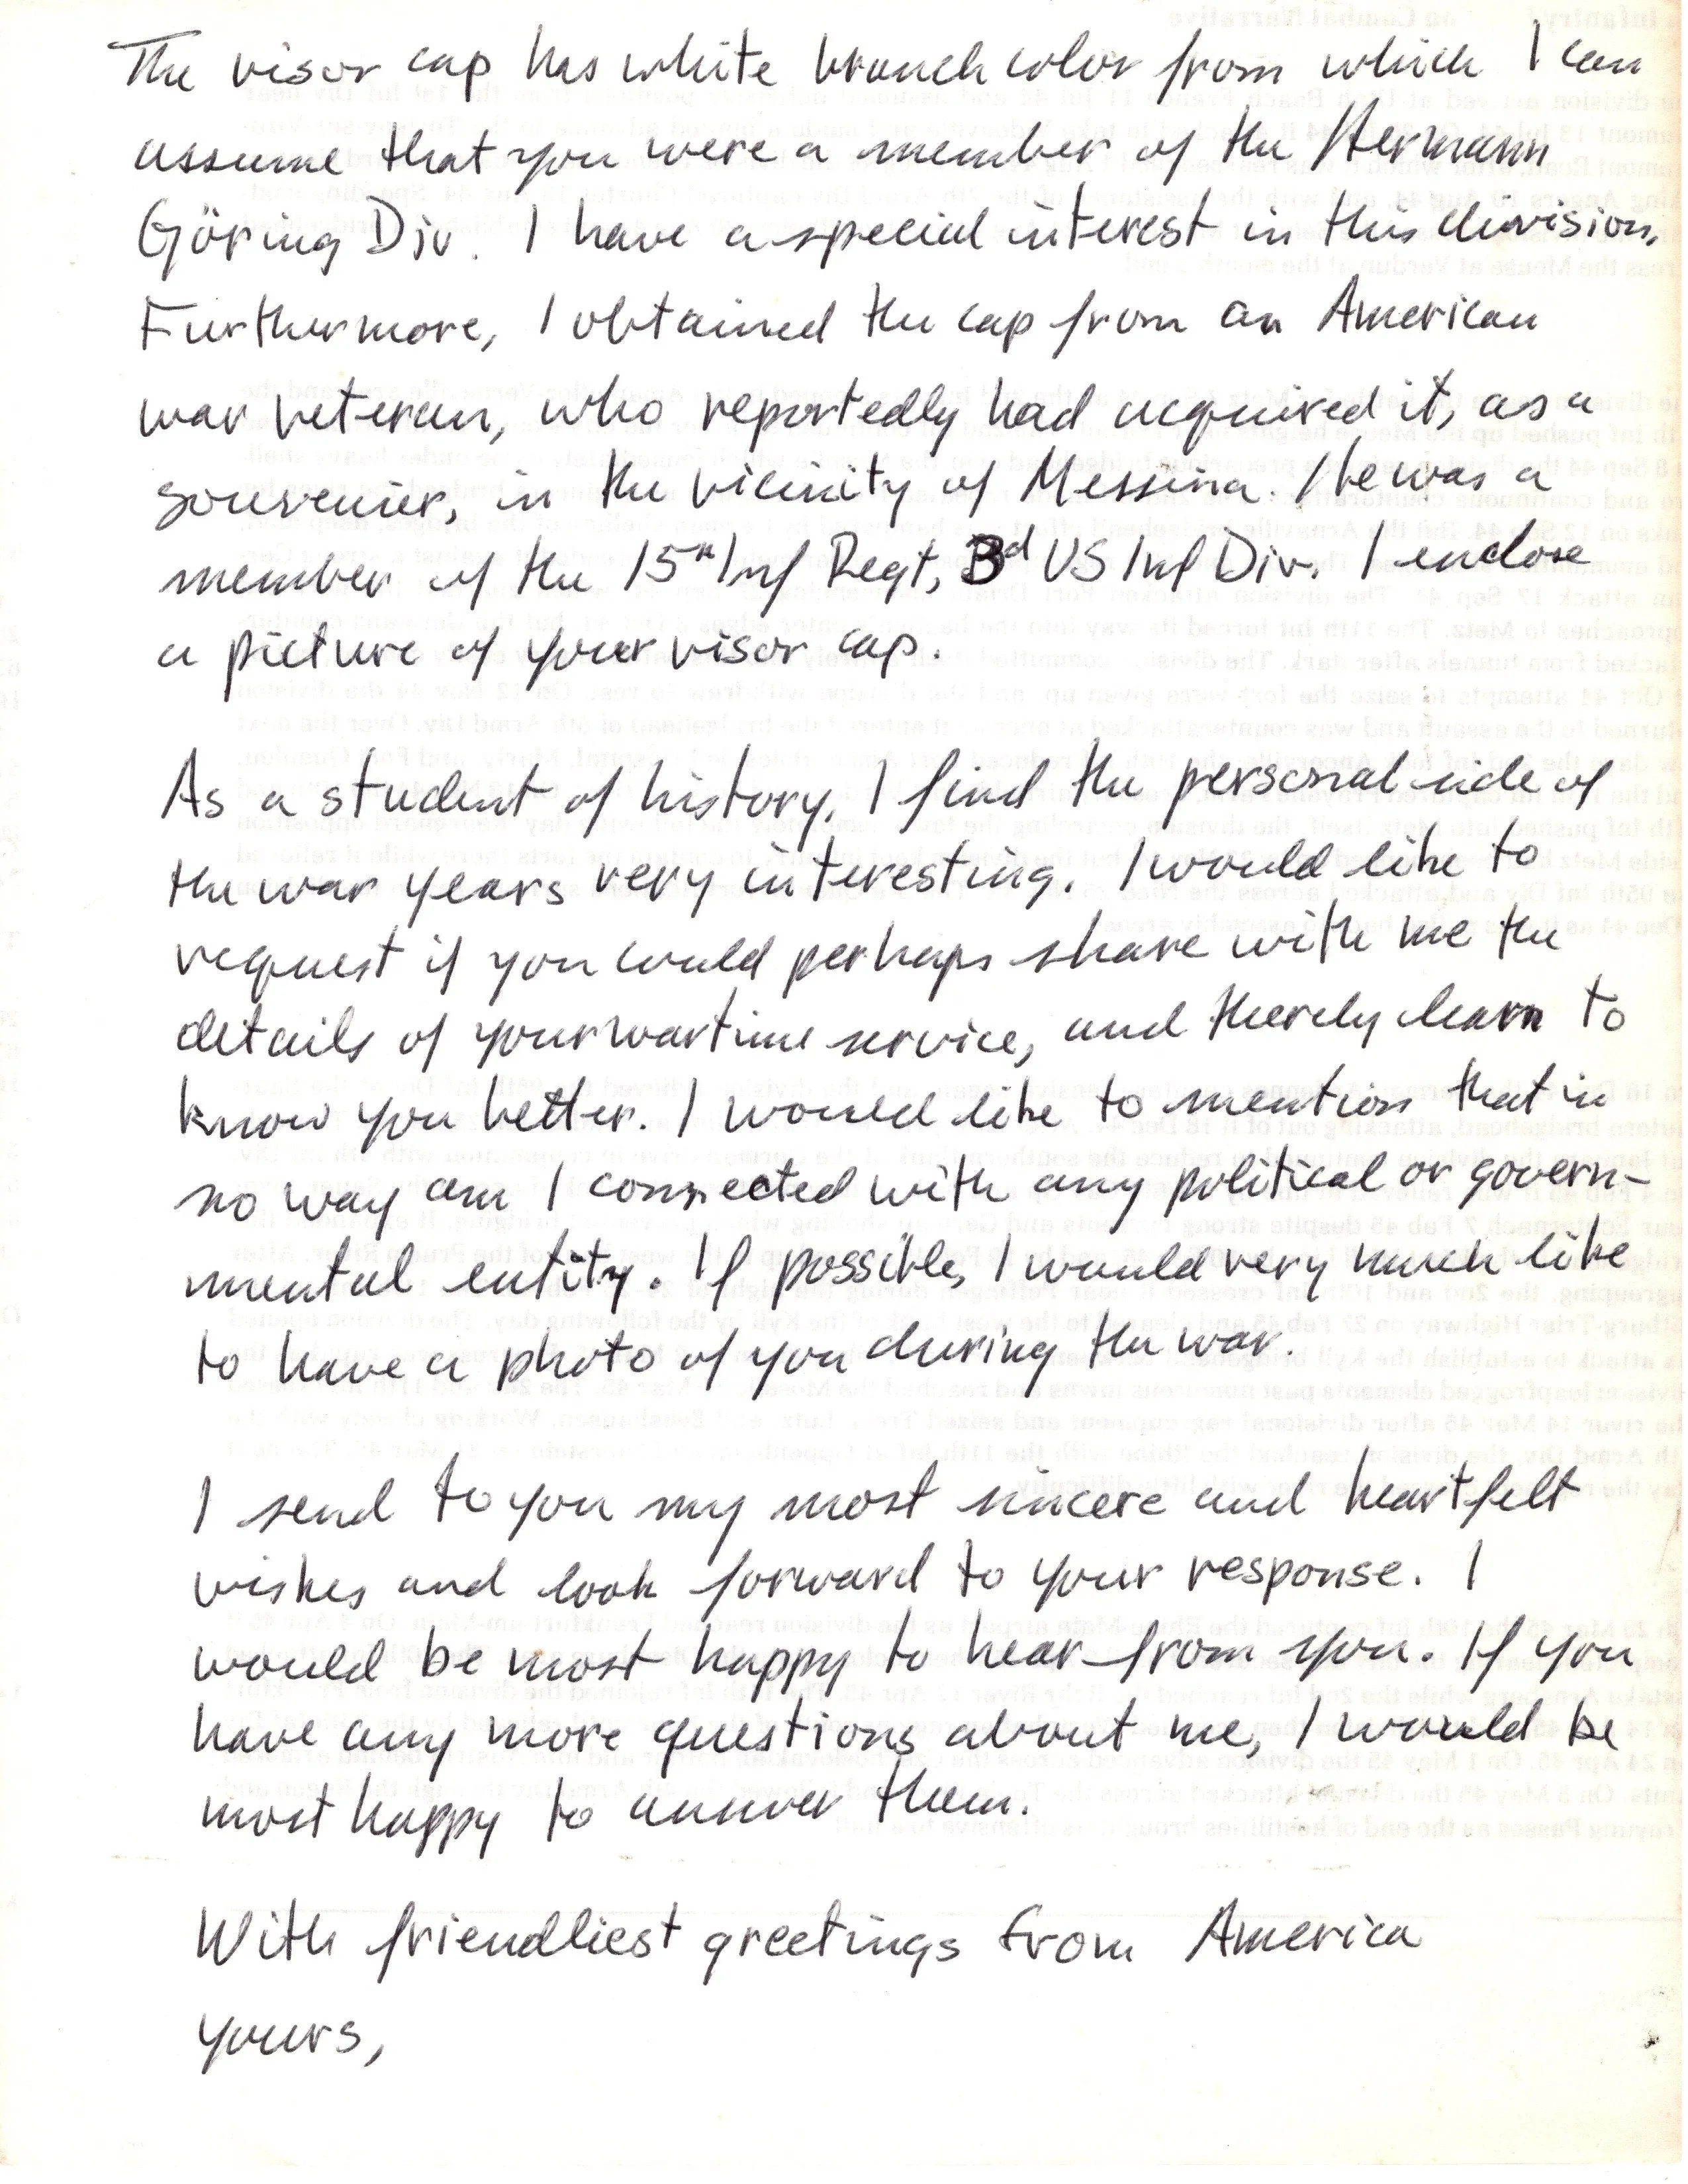 The visor cap has white branch color from which I can
assume that you were a member of the Hermann
Göring Div. I have a special interest in this division.
Furthermore, I obtained the cap from an American
war veteran, who reportedly had acquired it, as a
souvenier, in the vicinity of Messina. He was a
member of the 15th Inf Regt, 3d US Inf Div. I enclose
a picture of your visor cap.
As a student of history, I find the personal side of
the war years very interesting. I would like to
request if you could perhaps share with me the
details of your wartime service, and thereby learn to
know you better. I would like to mention that in
no way am I connected with any political or govern-
mental entity. If possible, I would very much like
to have a photo of you during the war.
I send to you my most sincere and heartfelt
wishes and look forward to your response. I
would be most happy to hear from you. If you
have any more questions about me, I would be
most happy to answer them.
With friendliest greetings from America
yours,